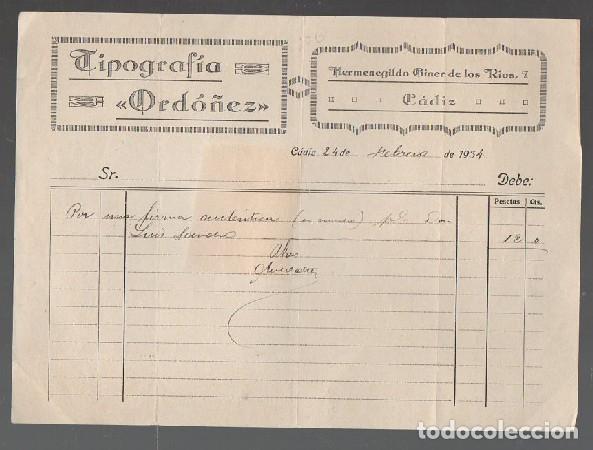 Tipografía
«Ordóñez»
Hermenegildo Giner de los Rios, 7
Cádiz
Cádiz 24 de febrero de 1934
Sr.
Debe:
Pesetas Cts.
Por una firma auténtica (en madera) Don
Luis
12 0
todocoleccion.net